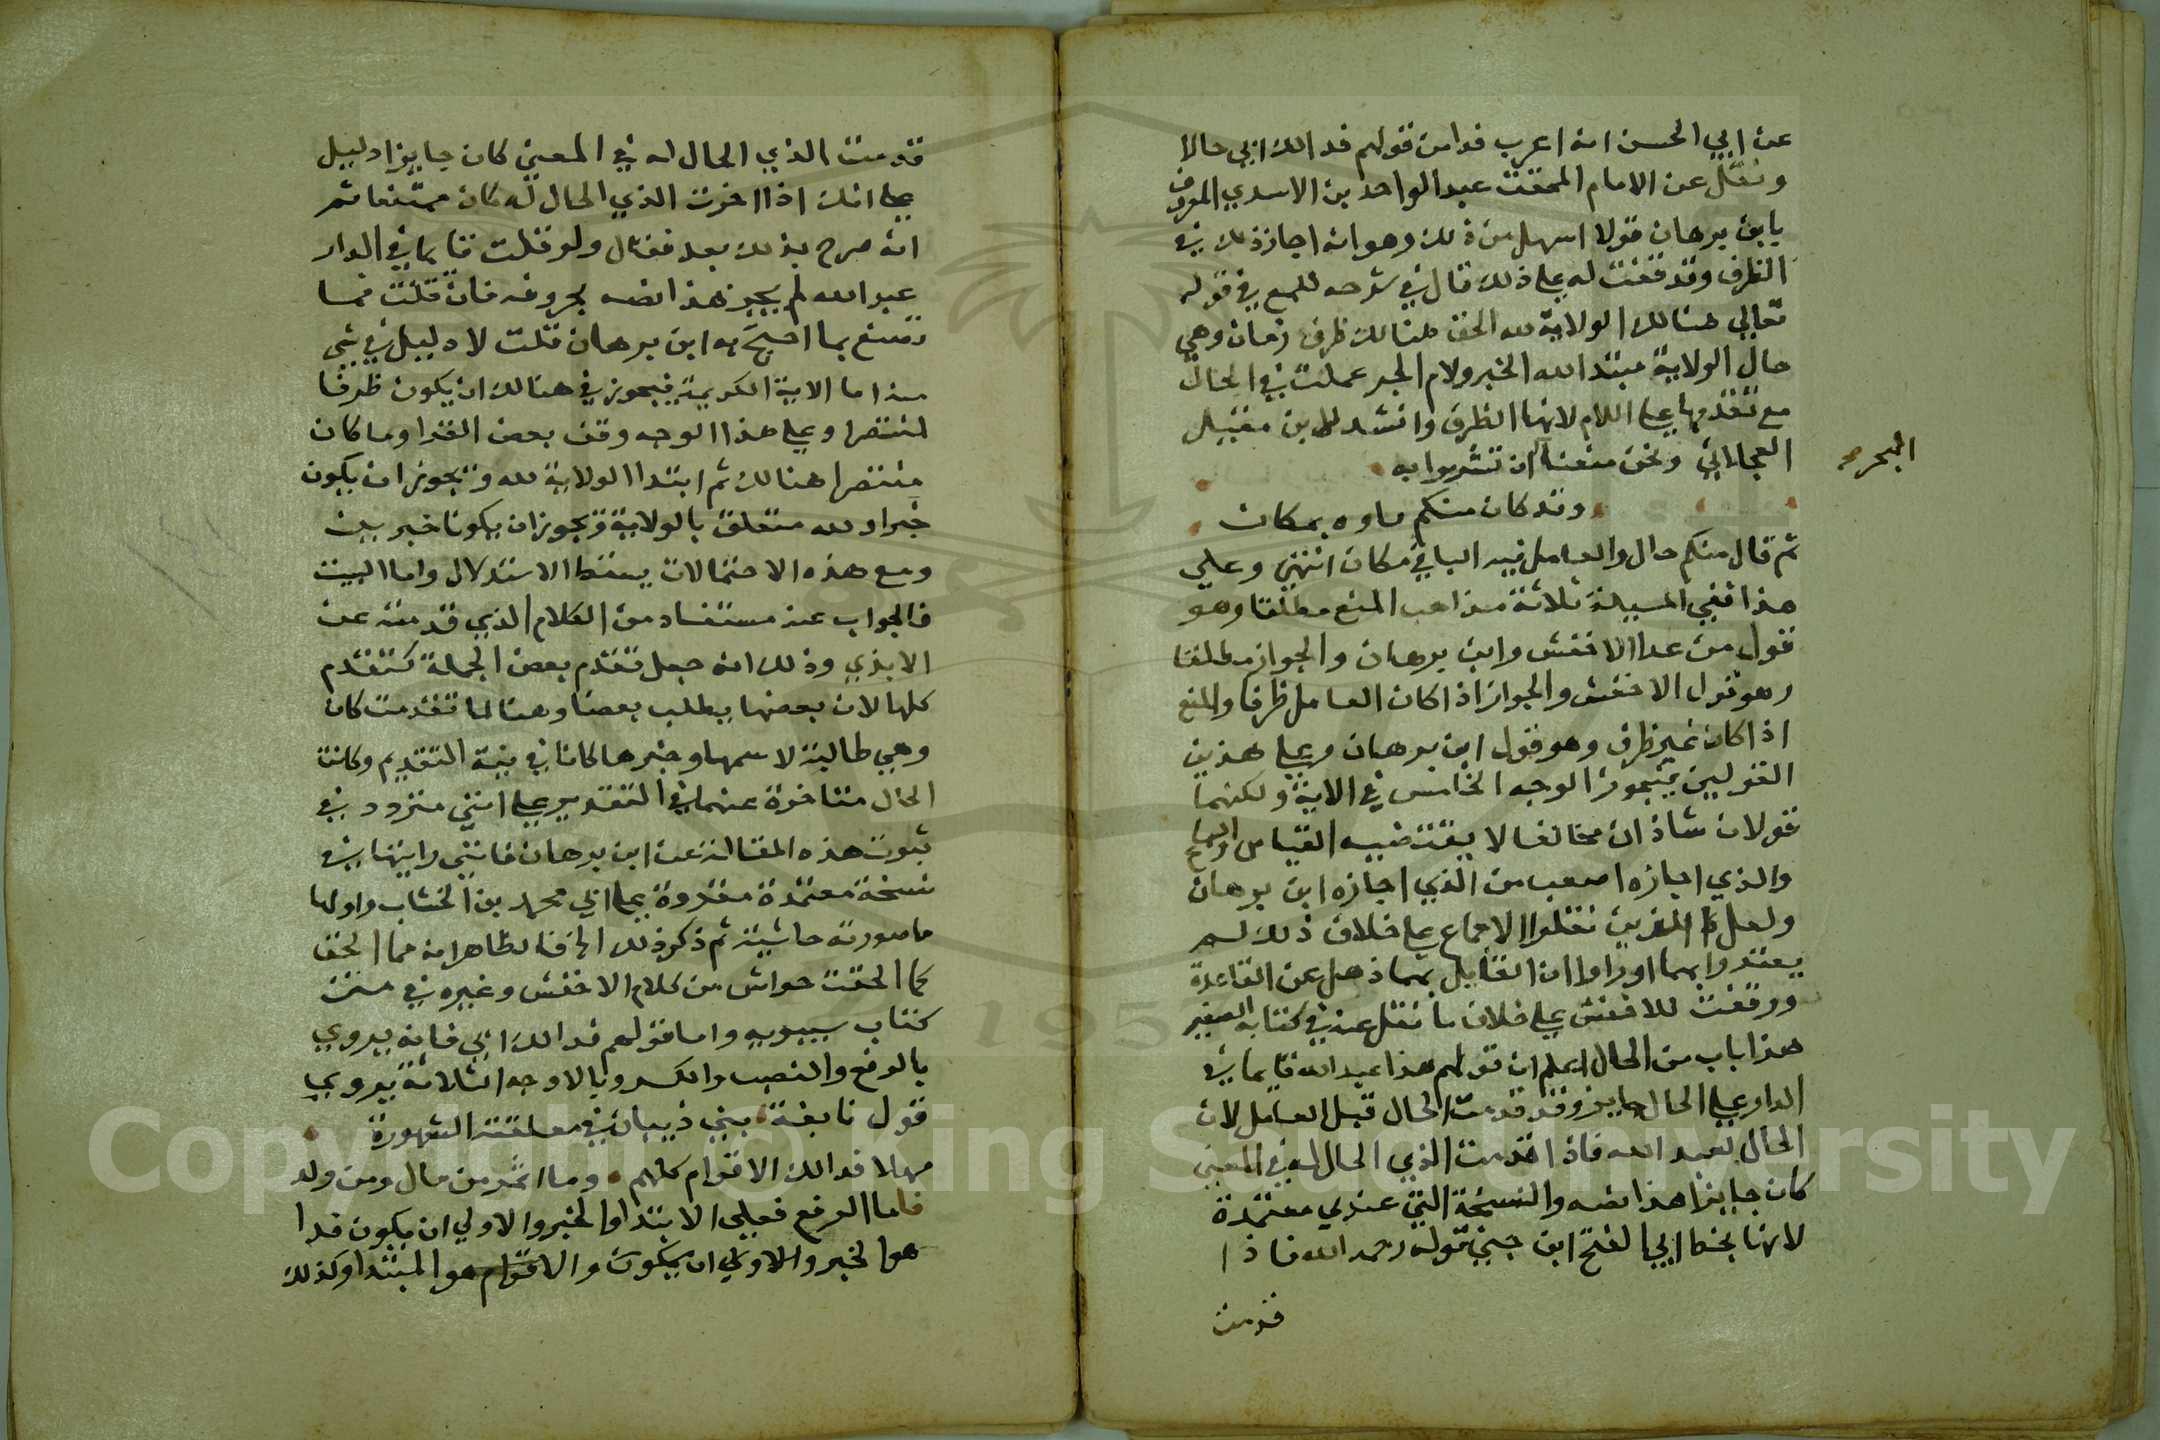 عن ابي الحسن انه اعرب فدا من قولهم فدا لك ابي حالا
ونقل عن الامام المحقق عبد الواحد بن الاسدي المعروف
بابن برهان قولا اسهل من ذلك وهو انه اجاز ذلك في
الظرف وقد وقفت له علي ذلك قال في شرحه للمع في قوله
تعالي هنالك الولاية لله الحق هنالك ظرف زمان وهي
حال الولاية مبتدا لله الخبر ولام الجر عملت في الحال
مع تقدمها علي اللام لانها الظرف وانشد لابن مقبل
العجلاني ونحن منعنا ان تشربوا به
البحر
وقد كان منكم ماوه بمكان
ثم قال منكم حال والعامل فيه الباقي مكان انتهي وعلي
هذا ففي المسيلة ثلاثة مذاهب المنع مطلقا وهو
قول من عدا الاخفش وابن برهان والجواز مطلقا
وهو قول الاخفش والجواز اذا كان العامل ظرفا والمنع
اذا كان غير ظرف وهو قول ابن برهان وعلي هذين
القولين فيجوز الوجه الخامس في الاية ولكنهما
قولان شاذان مخالفا لا يقتضيه القياس والسماع
والذي اجازه اصعب من الذي اجازه ابن برهان
ولعل الذين نقلوا الاجماع علي خلاف ذلك لم
يعتدوا بهما اوراوا ان القايل بهما ذهل عن القاعدة
ووقفت للاخفش علي خلاف ما نقل عنه في كتابه الصغير
هذا باب من الحال اعلم ان قولهم هذا عبد الله قايما في
الدار علي الحال جايز وقد قدمت الحال قبل العامل لان
الحال لعبد الله فاذا قدمت الذي الحال له في المعني
كان جايزا هذا نصه والنسخة التي عندي معتمدة
لانها بخط ابي الفتح ابن جني قوله رحمه الله فاذا
قدمت
قدمت الذي الحال له في المعني كان جايزا دليل
علي انك اذا اخرت الذي الحال له كان ممتنعا ثم
انه صرح بذلك بعد فقال ولو قلت قايما في الدار
عبد الله لم يجز هذا نصه بحروفه فان قلت فما
تصنع بما احتج به ابن برهان قلت لا دليل في شي
منه اما الاية الكريمة فيجوز في هنالك ان يكون ظرفا
لمنتصرا وعلي هذا الوجه وقف بعض القرا وما كان
منتصرا هنالك ثم ابتدا الولاية لله ويجوز ان يكون
خبرا ولله متعلق بالولاية ويجوز ان يكونا خبرين
ومع هذه الاحتمالات يسقط الاستدلال واما البيت
فالجواب عنه مستفاد من الكلام الذي قدمته عن
الابذي وذلك انه جعل تقدم بعض الجملة كتقدم
كلها لان بعضها يطلب بعضا وهنا لما تقدمت كان
وهي طالبة لاسمها وخبرها كانا في نية التقديم وكانت
الحال متاخرة عنهما في التقدير علي انني متردد في
ثبوت هذه المقالة عن ابن برهان فانني رايتها في
نسخة معتمدة مقروة علي ابي محمد بن الخشاب واولها
ما صورته حاشية ثم ذكر ذلك الي فالظاهر انه مما الحق
كما الحقت حواش من كلام الاخفش وغيره في متن
كتاب سيبويه واما قولهم فدا لك ابي فانه يروي
بالرفع والنصب والكسر وبالاوجه الثلاثة يروي
قول نابغة بني ذيبان في معلقته المشهورة
مهلا فدا لك الاقوام كلهم وما اثمر من مال ومن ولد
فاما الرفع فعلي الابتدا والخبر والاولي ان يكون فدا
هو الخبر والاولي ان يكون والاقوام هو المبتدا وكذلك